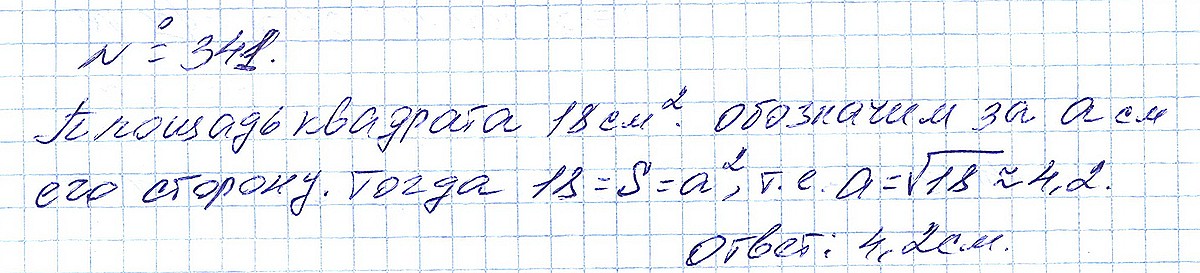 № 341.
Площадь квадрата 18 см². Обозначим за a см
его сторону. Тогда 18 = S = a², т.е. a = √18 ≈ 4,2.
Ответ: 4,2 см.